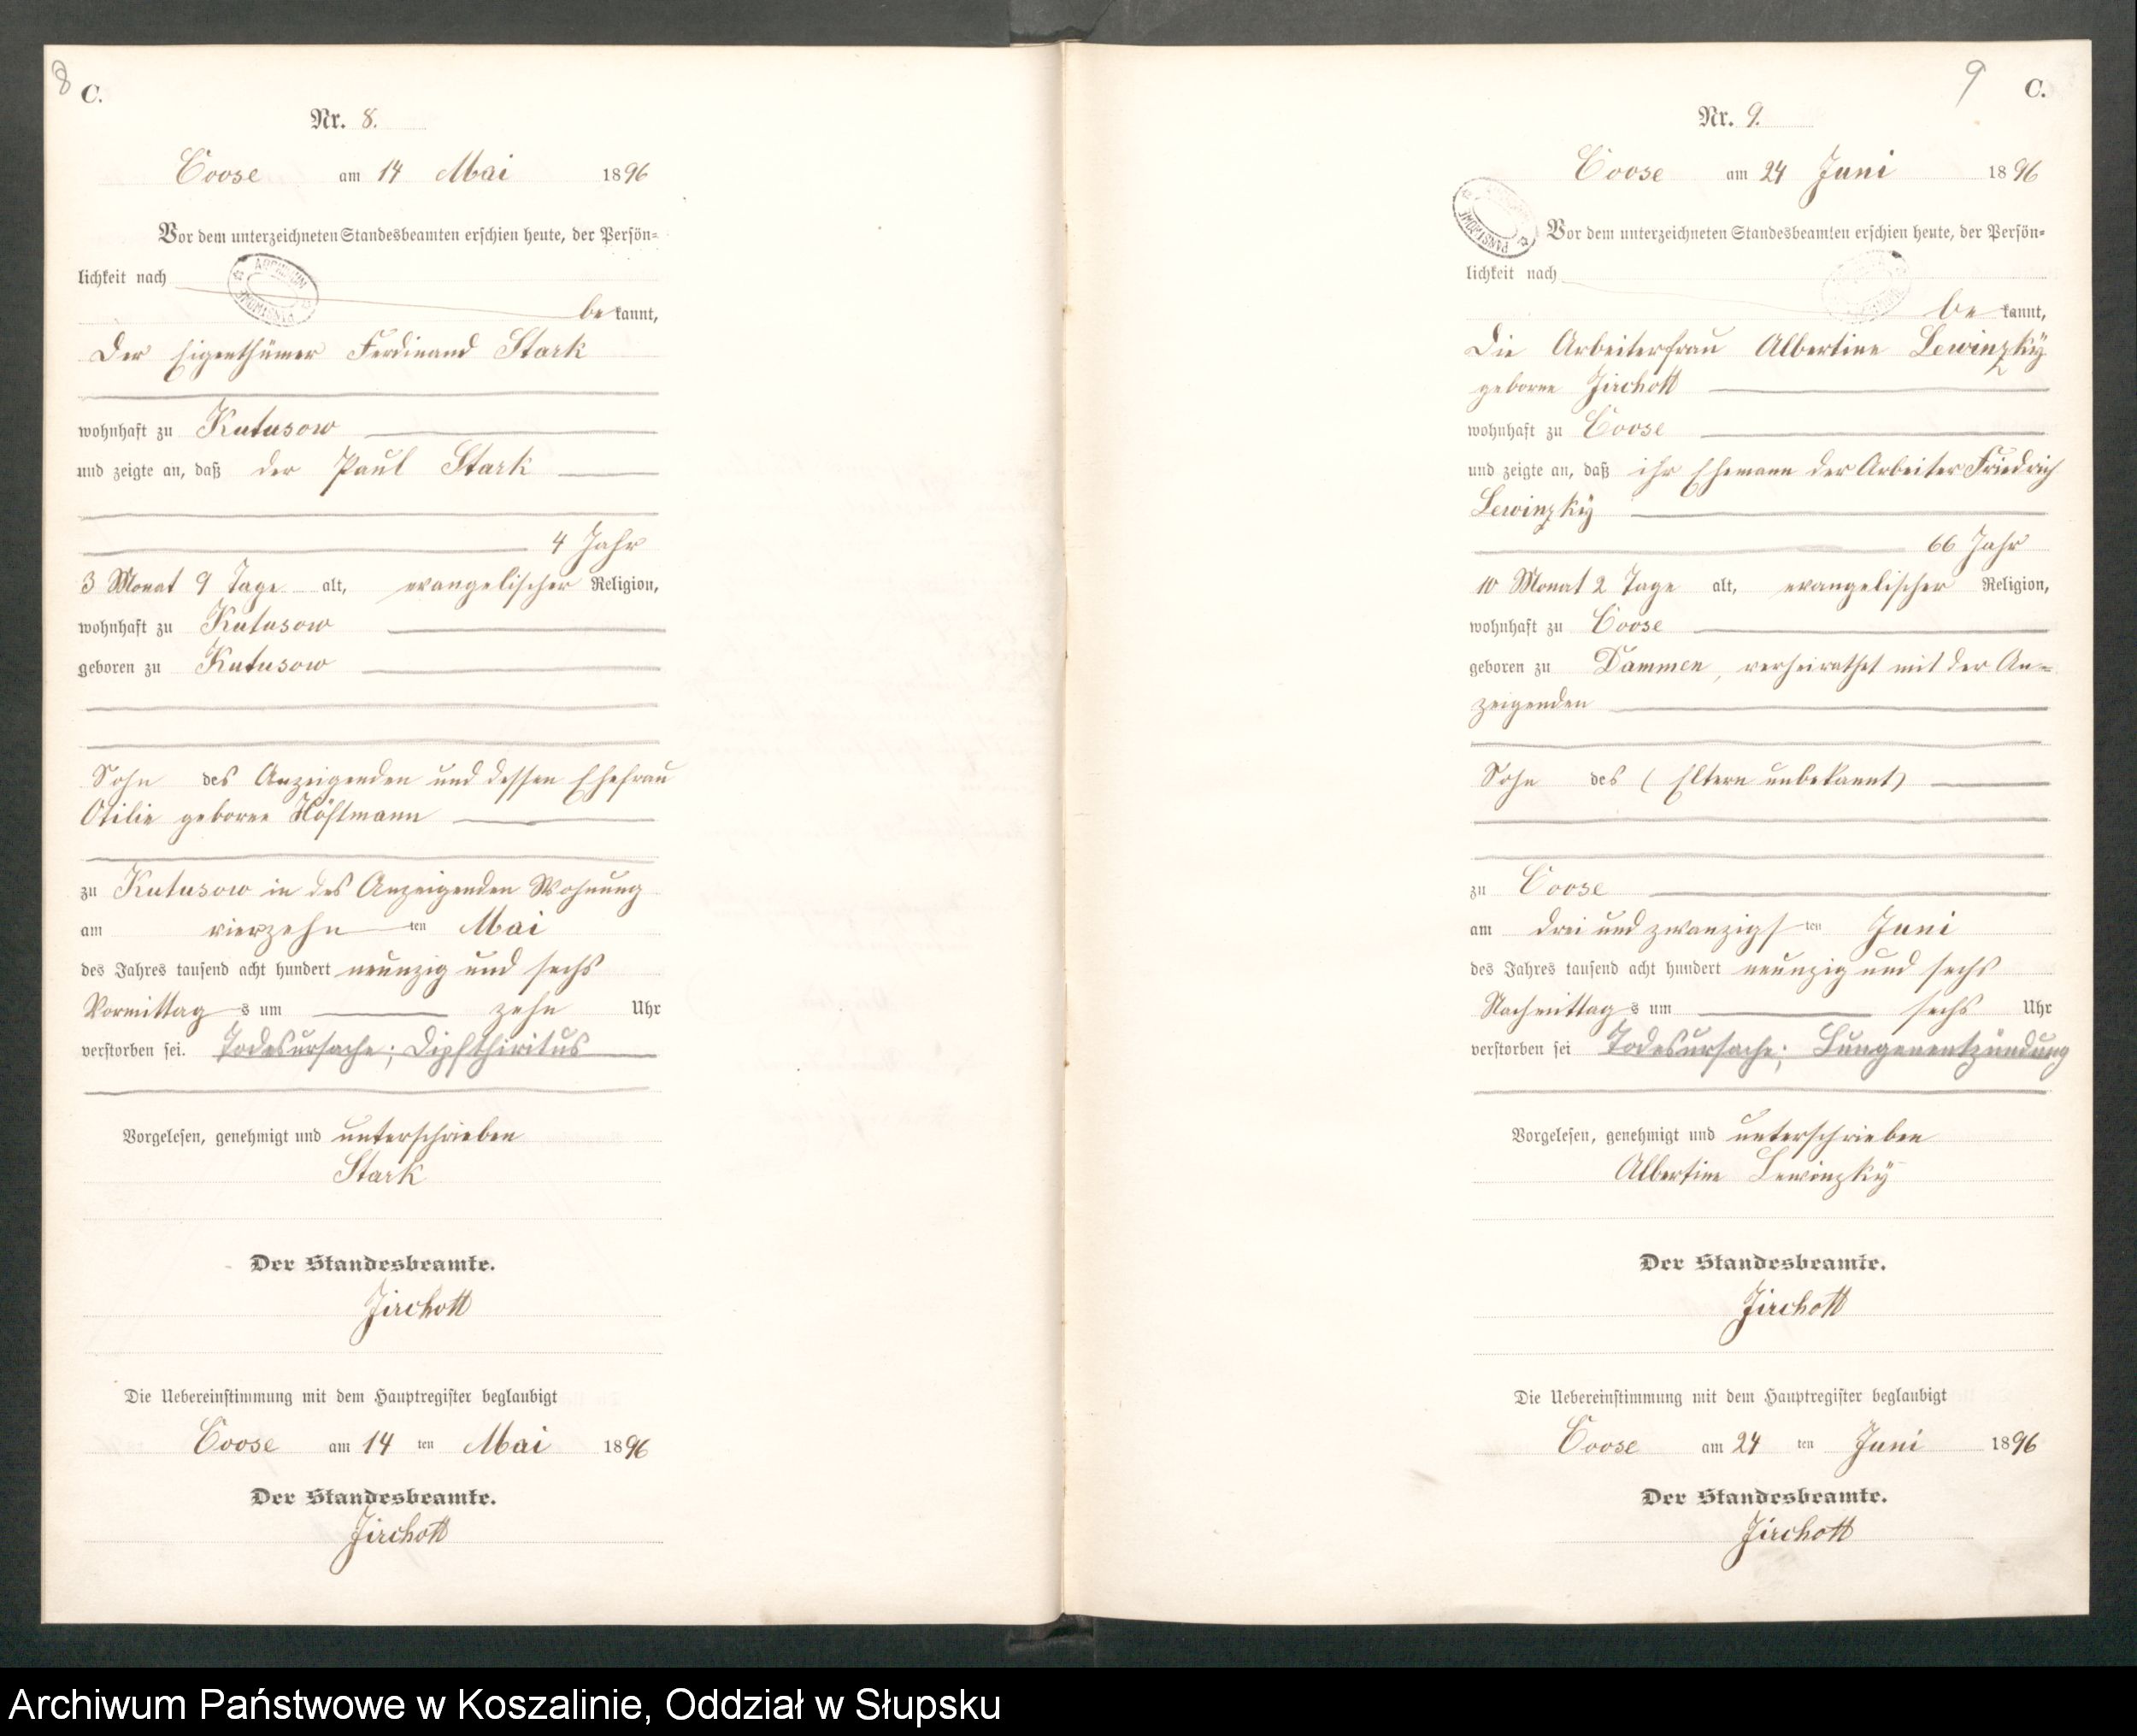 8
C.
Nr. 8.
Coose am 14 Mai 1896
Vor dem unterzeichneten Standesbeamten erschien heute, der Persön=
lichkeit nach
be kannt,
der Eigenthümer Ferdinand Stark
wohnhaft zu Kutusow
und zeigte an, daß der Paul Stark
4 Jahr
3 Monat 9 Tage alt, evangelischer Religion,
wohnhaft zu Kutusow
geboren zu Kutusow
Sohn des Anzeigenden und dessen Ehefrau
Otilie geborne
zu Kutusow in des Anzeigenden Wohnung
am vierzehn ten Mai
des Jahres tausend acht hundert neunzig und sechs
Vormittag s um zehn Uhr
verstorben sei. Todesursache; Dipfthiritus
Vorgelesen, genehmigt und unterschrieben
Stark
Der Standesbeamte.
Jirchott
Die Uebereinstimmung mit dem Hauptregister beglaubigt
Coose am 14 ten Mai 1896
Der Standesbeamte.
Jirchott
9
C.
Nr. 9.
Coose am 24 Juni 1896
Vor dem unterzeichneten Standesbeamten erschien heute, der Persön=
lichkeit nach
be kannt,
die Arbeiterfrau Albertine Lewinzky
geborne Jirchott
wohnhaft zu Coose
und zeigte an, daß ihr Ehemann der Arbeiter Friedrich
Lewinzky
66 Jahr
10 Monat 2 Tage alt, evangelischer Religion,
wohnhaft zu Coose
geboren zu Dammen, verheirathet mit der An=
zeigenden
Sohn des (Eltern unbekannt)
zu Coose
am drei und zwanzigs ten Juni
des Jahres tausend acht hundert neunzig und sechs
Nachmittag s um sechs Uhr
verstorben sei Todesursache; Lungenentzündung
Vorgelesen, genehmigt und unterschrieben
Albertine Lewinzky
Der Standesbeamte.
Jirchott
Die Uebereinstimmung mit dem Hauptregister beglaubigt
Coose am 24 ten Juni 1896
Der Standesbeamte.
Jirchott
Archiwum Państwowe w Koszalinie, Oddział w Słupsku